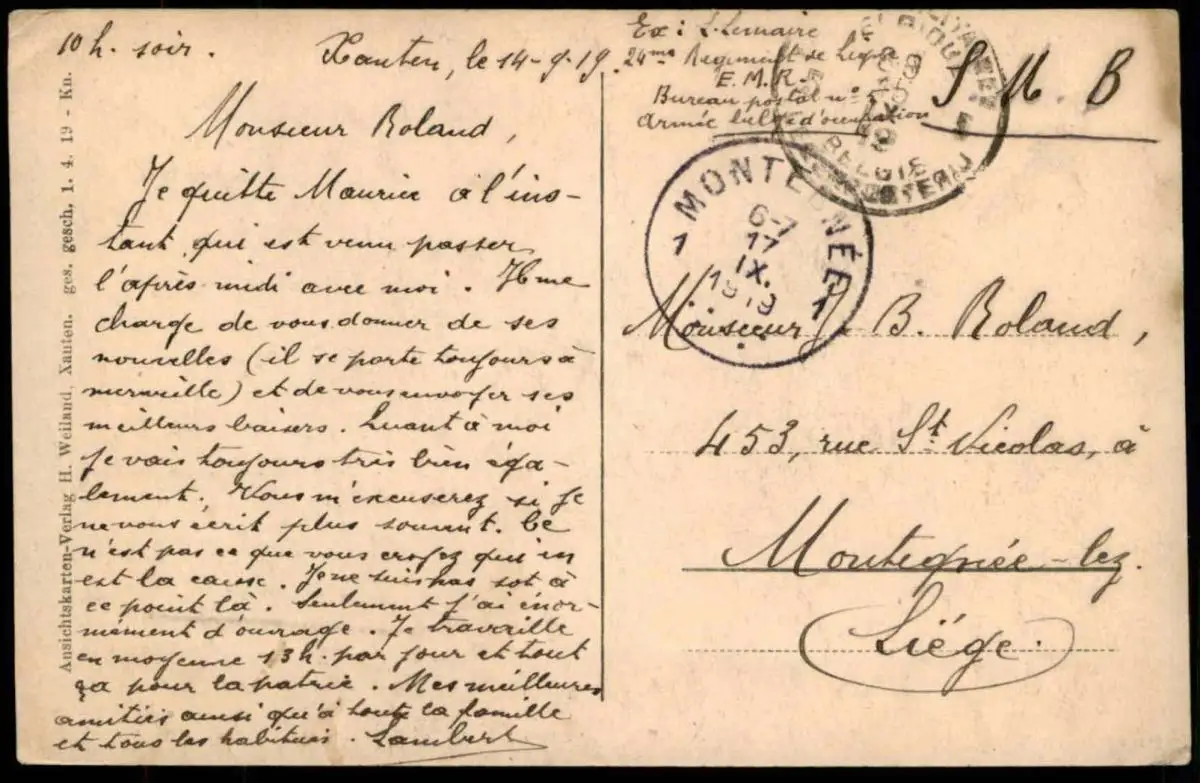 10 h. soir.
Xanten, le 14-9-19.
Monsieur Roland,
Je quitte Maurice à l'ins-
tant qui est venu passer
l'après midi avec moi. Il me
charge de vous donner de ses
nouvelles (il se porte toujours à
merveille) et de vous envoyer ses
meilleurs baisers. Quant à moi
je vais toujours très bien éga-
lement. Vous m'excuserez si je
ne vous écrit plus souvent. Ce
n'est pas ce que vous croyez qui en
est la cause. Je ne suis pas sot à
ce point là. Seulement j'ai énor-
mément d'ouvrage. Je travaille
en moyenne 13 h. par jour et tout
ça pour la patrie. Mes meilleures
amitiés ainsi qu'à toute la famille
et tous les habitués. Lambert
Ansichtskarten-Verlag H. Weiland, Xanten. ges. gesch. 1. 4. 19 - Ku.
Ex: L. Lemaire
24me Régiment de Ligne
E. M. R.
Bureau postal n° 5
Armée belge d'occupation
S. M. B
BELGIE
MONTEGNÉE
1 1
6-7
17
IX.
1919
Monsieur J. B. Roland,
453, rue St. Nicolas, à
Montegnée-lez
Liége.